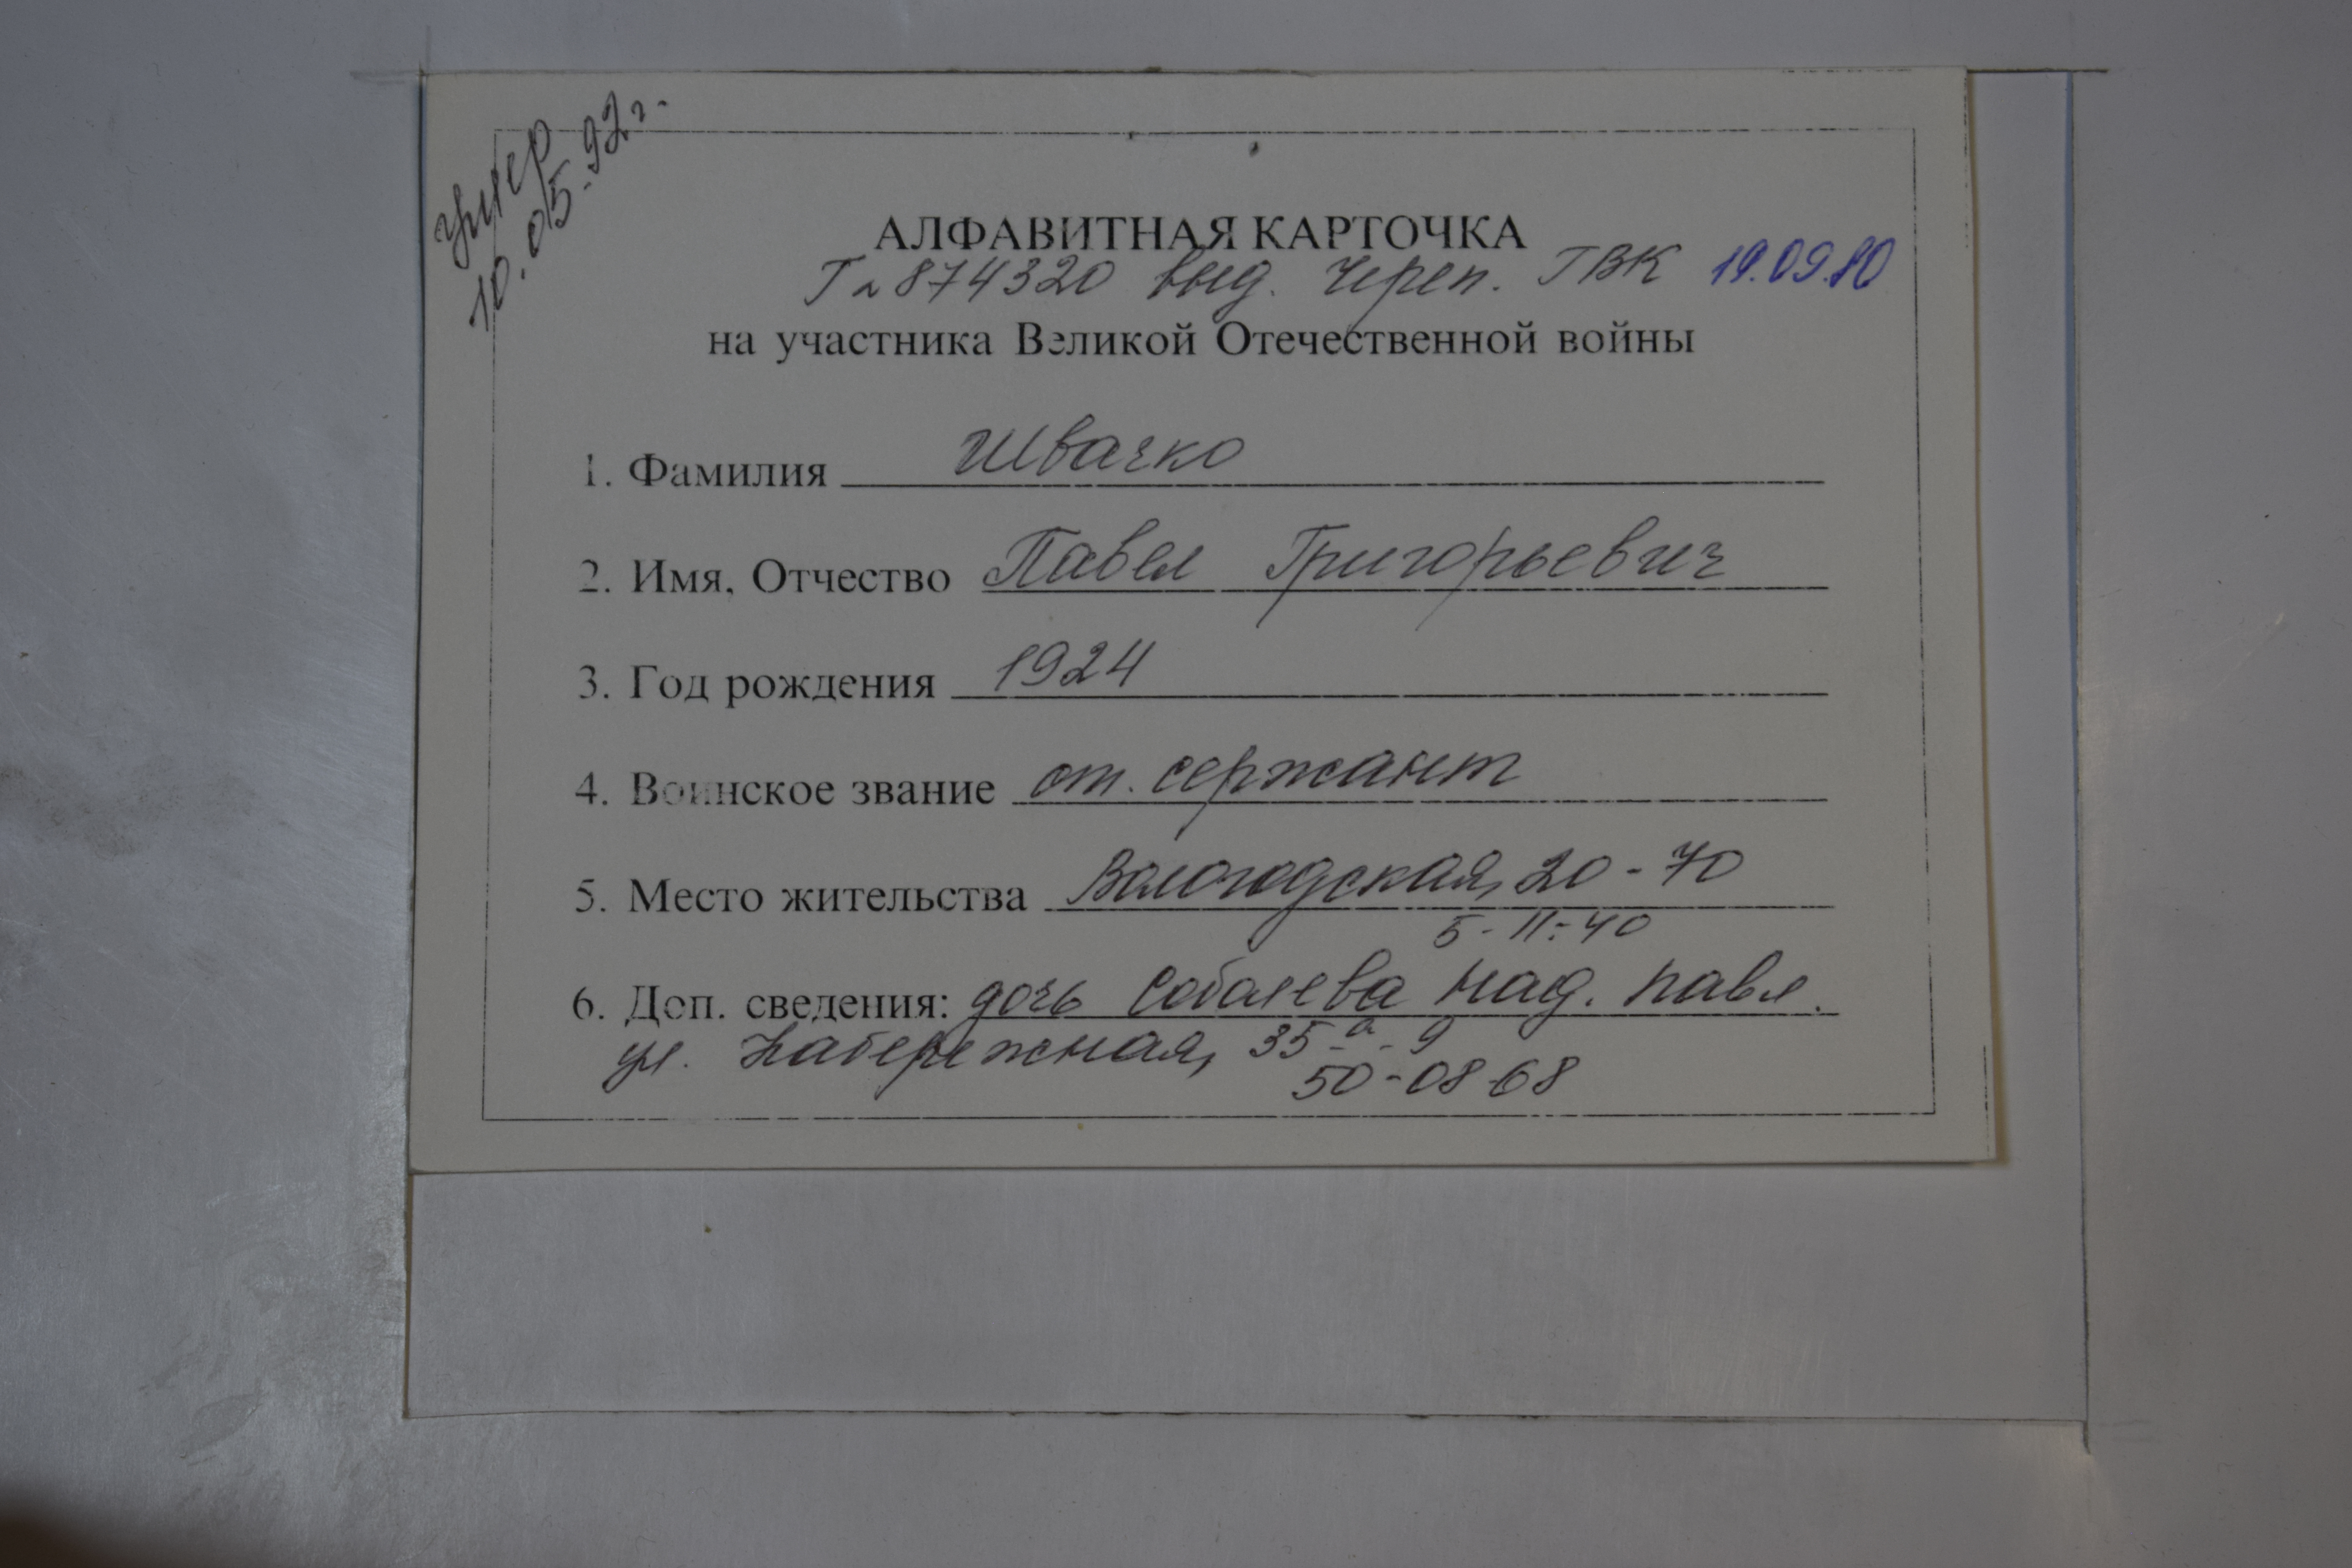 умер
10.05.92г.
АЛФАВИТНАЯ КАРТОЧКА
Гл 874320 выд. Череп. ГВК 19.09.80
на участника Великой Отечественной войны
1. Фамилия Швачко
2. Имя, Отчество Павел Григорьевич
3. Год рождения 1924
4. Воинское звание ст. сержант
5. Место жительства Вологодская, 20-70
5-11-40
6. Доп. сведения: дочь Соболева Над. Павл.
ул. Набережная, 35-а-9
50-08-68